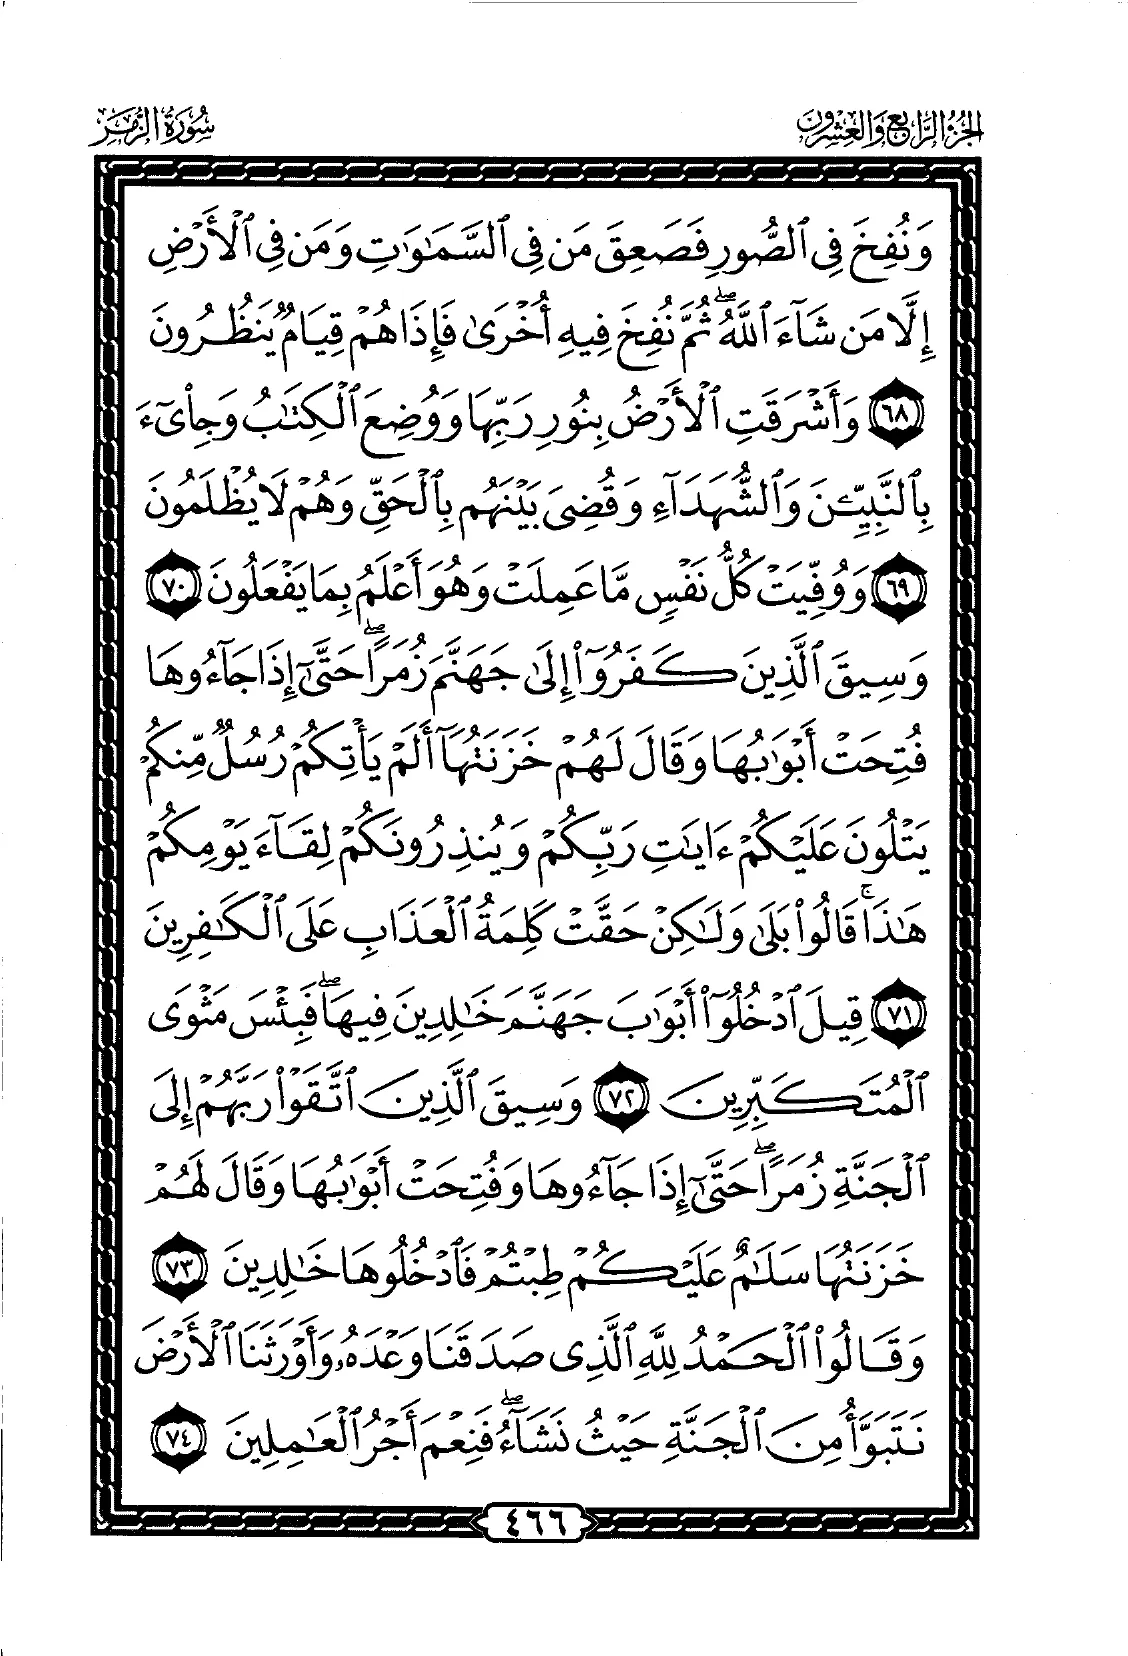 الجزء الرابع والعشرون
سورة الزمر
وَنُفِخَ فِي ٱلصُّورِ فَصَعِقَ مَن فِي ٱلسَّمَٰوَٰتِ وَمَن فِي ٱلْأَرْضِ
إِلَّا مَن شَآءَ ٱللَّهُ ۖ ثُمَّ نُفِخَ فِيهِ أُخْرَىٰ فَإِذَا هُمْ قِيَامٌ يَنظُرُونَ
٦٨ وَأَشْرَقَتِ ٱلْأَرْضُ بِنُورِ رَبِّهَا وَوُضِعَ ٱلْكِتَٰبُ وَجِا۟ىٓءَ
بِٱلنَّبِيِّۦنَ وَٱلشُّهَدَآءِ وَقُضِىَ بَيْنَهُم بِٱلْحَقِّ وَهُمْ لَا يُظْلَمُونَ
٦٩ وَوُفِّيَتْ كُلُّ نَفْسٍ مَّا عَمِلَتْ وَهُوَ أَعْلَمُ بِمَا يَفْعَلُونَ ٧٠
وَسِيقَ ٱلَّذِينَ كَفَرُوٓا۟ إِلَىٰ جَهَنَّمَ زُمَرًا ۖ حَتَّىٰٓ إِذَا جَآءُوهَا
فُتِحَتْ أَبْوَٰبُهَا وَقَالَ لَهُمْ خَزَنَتُهَآ أَلَمْ يَأْتِكُمْ رُسُلٌ مِّنكُمْ
يَتْلُونَ عَلَيْكُمْ ءَايَٰتِ رَبِّكُمْ وَيُنذِرُونَكُمْ لِقَآءَ يَوْمِكُمْ
هَٰذَا ۚ قَالُوا۟ بَلَىٰ وَلَٰكِنْ حَقَّتْ كَلِمَةُ ٱلْعَذَابِ عَلَى ٱلْكَٰفِرِينَ
٧١ قِيلَ ٱدْخُلُوٓا۟ أَبْوَٰبَ جَهَنَّمَ خَٰلِدِينَ فِيهَا ۖ فَبِئْسَ مَثْوَى
ٱلْمُتَكَبِّرِينَ ٧٢ وَسِيقَ ٱلَّذِينَ ٱتَّقَوْا۟ رَبَّهُمْ إِلَى
ٱلْجَنَّةِ زُمَرًا ۖ حَتَّىٰٓ إِذَا جَآءُوهَا وَفُتِحَتْ أَبْوَٰبُهَا وَقَالَ لَهُمْ
خَزَنَتُهَا سَلَٰمٌ عَلَيْكُمْ طِبْتُمْ فَٱدْخُلُوهَا خَٰلِدِينَ ٧٣
وَقَالُوا۟ ٱلْحَمْدُ لِلَّهِ ٱلَّذِى صَدَقَنَا وَعْدَهُۥ وَأَوْرَثَنَا ٱلْأَرْضَ
نَتَبَوَّأُ مِنَ ٱلْجَنَّةِ حَيْثُ نَشَآءُ ۖ فَنِعْمَ أَجْرُ ٱلْعَٰمِلِينَ ٧٤
٤٦٦